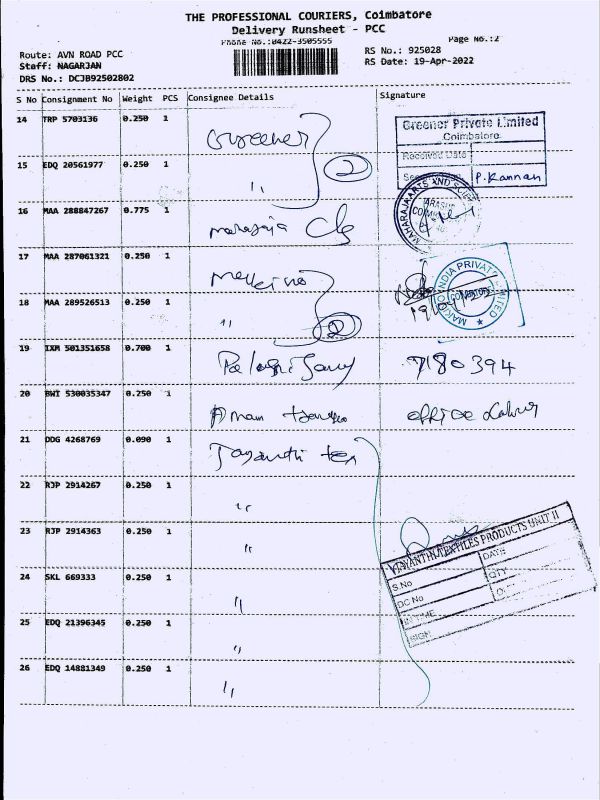 THE PROFESSIONAL COURIERS, Coimbatore
Delivery Runsheet - PCC
Phone No.:0422-3505555
Page No.:2
Route: AVN ROAD PCC
Staff: NAGARJAN
DRS No.: DCJB92502802
RS No.: 925028
RS Date: 19-Apr-2022
S No Consignment No Weight PCS Consignee Details Signature
14 TRP 5703136 0.250 1 Greener
Greener Private Limited
Coimbatore
Received Date
P. Kannan
15 EDQ 20561977 0.250 1 " 2
16 MAA 288847267 0.775 1 maharaja Clg
MAHARAJA ARTS AND
17 MAA 287061321 0.250 1
MAKINO INDIA PRIVATE LIMITED
18 MAA 289526513 0.250 1 " 2
19 IXM 501351658 0.700 1 7180394
20 BWI 530035347 0.250 1 office
21 DDG 4268769 0.090 1 Jayanthi tex
22 RJP 2914267 0.250 1 "
23 RJP 2914363 0.250 1 "
JAYANTHI TEXTILES PRODUCTS UNIT II
S.No
DATE
DC No
QTY
IN TIME
SIGN
24 SKL 669333 0.250 1 "
25 EDQ 21396345 0.250 1 "
26 EDQ 14881349 0.250 1 "